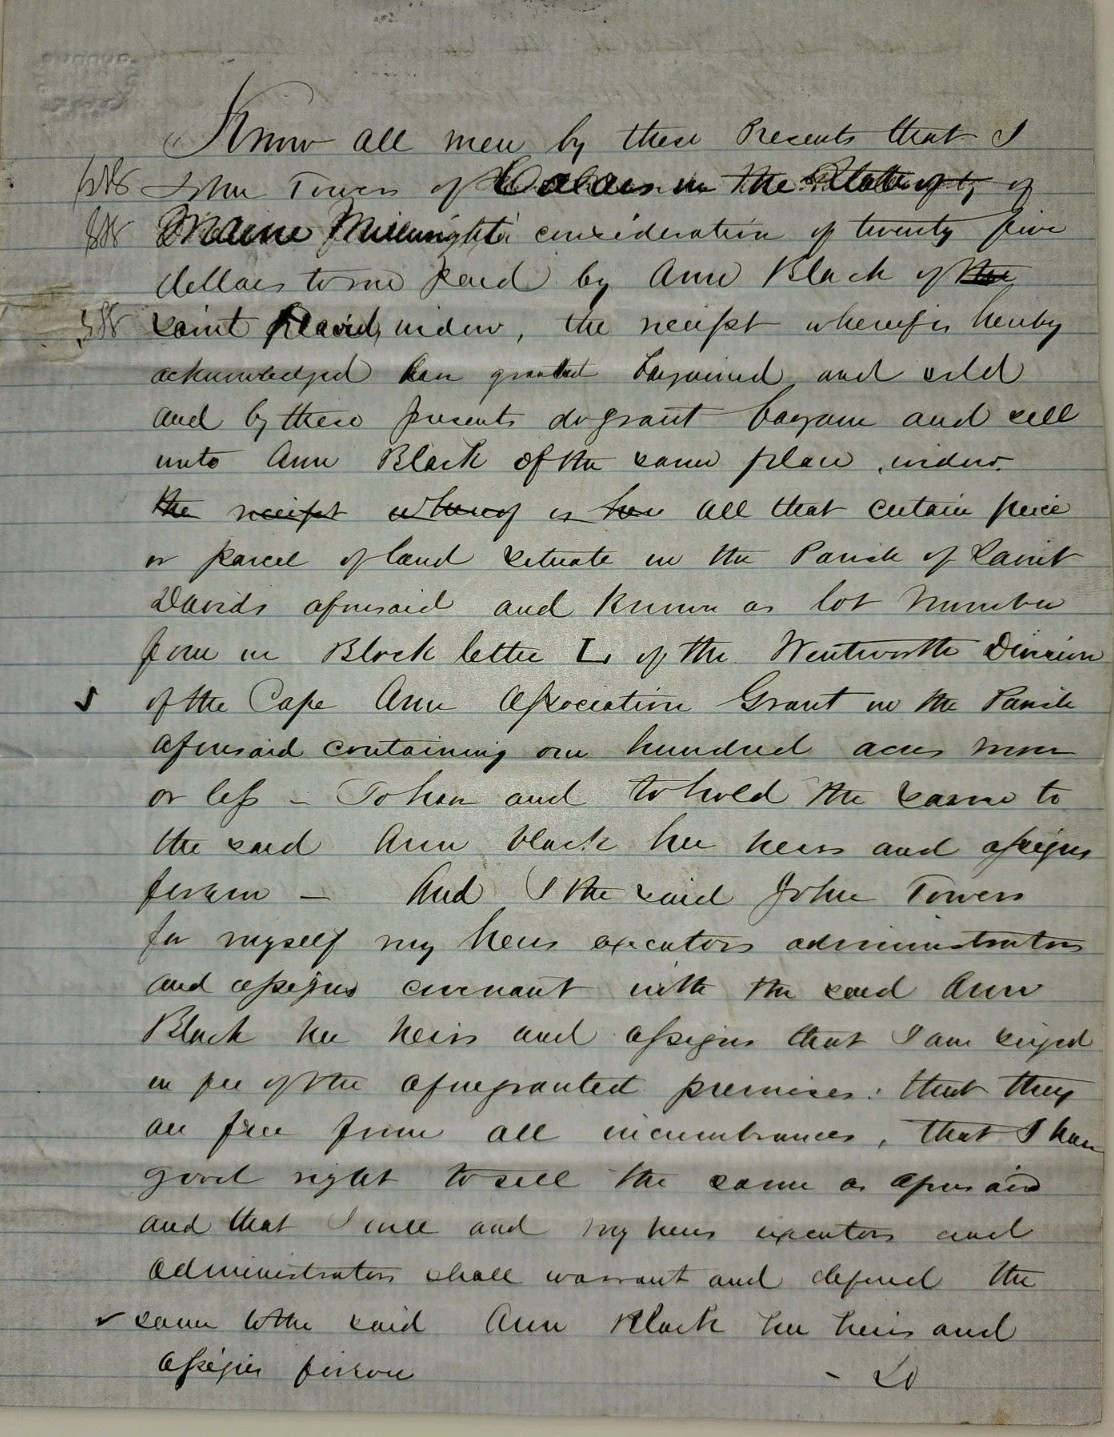 Know all men by these Presents that I
John Towers of Calais in the State of
Maine Millwright in consideration of twenty five
dollars to me paid by Ann Black of the
Saint David, widow, the receipt whereof is hereby
acknowledged have granted bargained and sold
and by these presents do grant bargain and sell
unto Ann Black of the same place, widow.
the receipt whereof is her all that certain peice
or parcel of land situate in the Parish of Saint
Davids aforesaid and known as lot number
four in Block letter L, of the Wentworth Division
of the Cape Ann Association Grant in the Parish
aforesaid containing one hundred acres more
or less – To have and to hold the same to
the said Ann black her heirs and assigns
forever – And I the said John Towers
for myself my heirs executors administrators
and assigns covenant with the said Ann
Black her heirs and assigns that I am seized
in fee of the aforegranted premises: that they
are free from all incumbrances, that I have
good right to sell the same as aforesaid
and that I will and my heirs executors and
administrators shall warrant and defend the
same to the said Ann Black her heirs and
assigns forever –